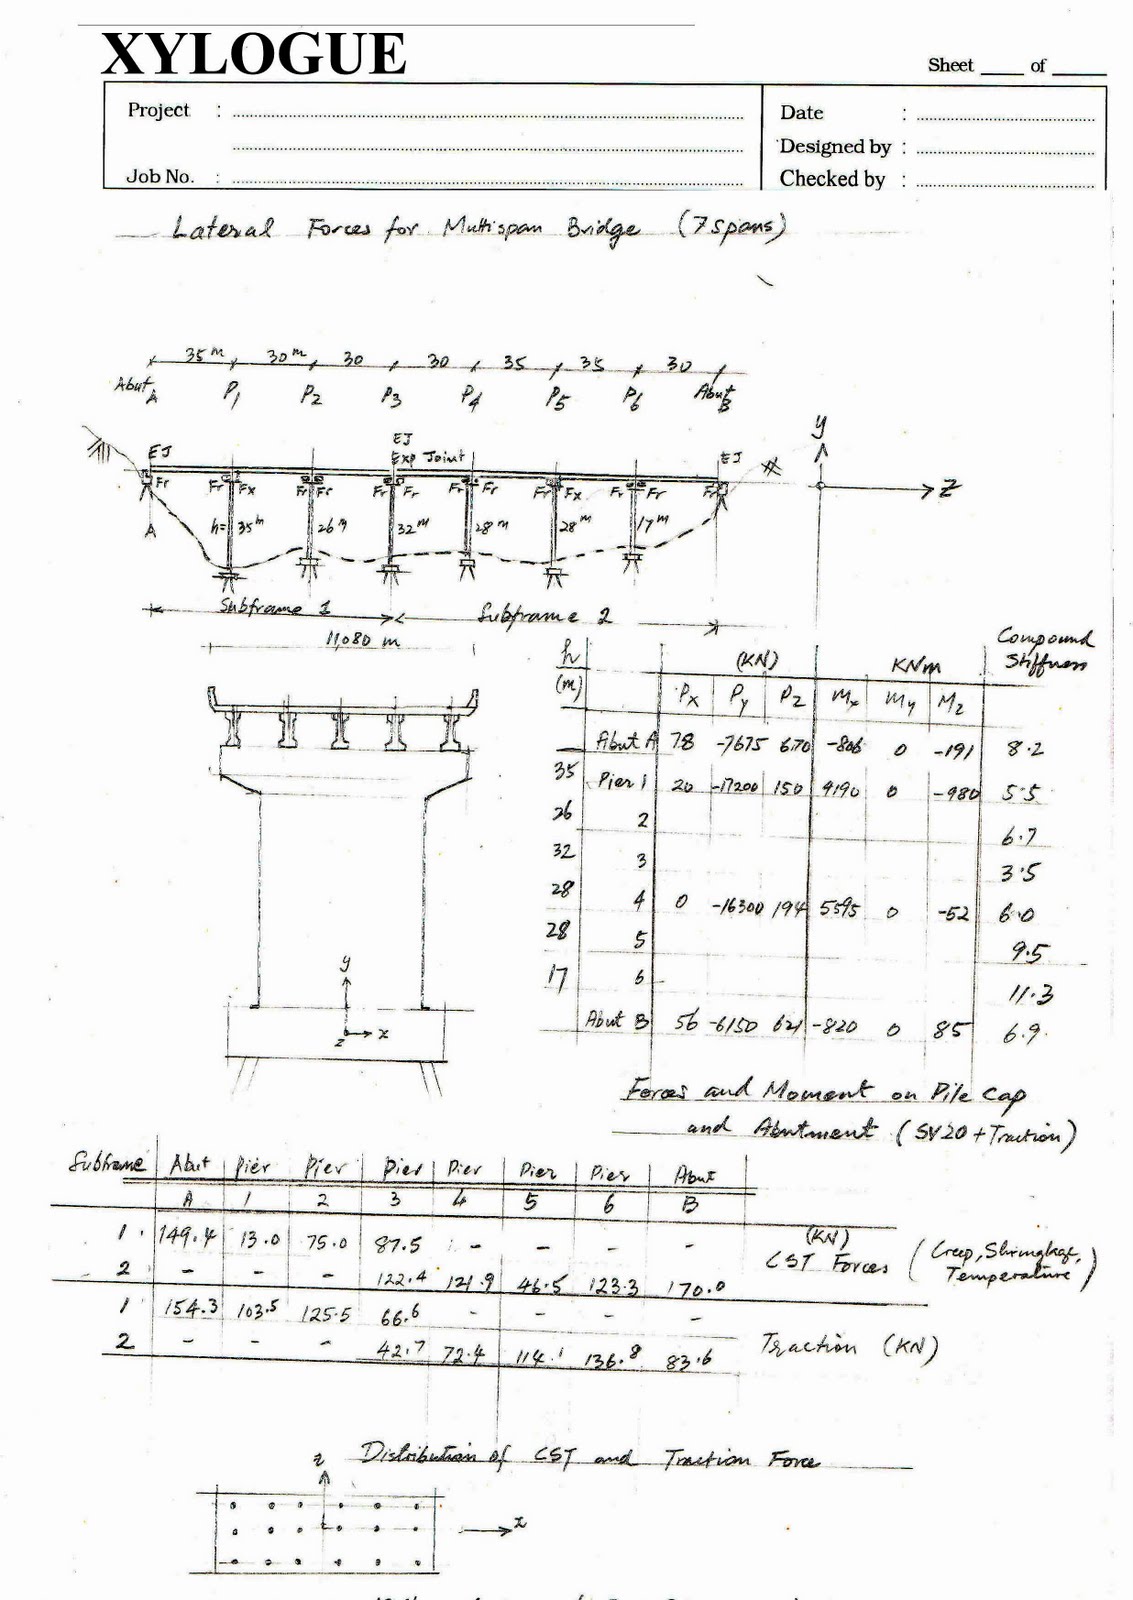 XYLOGUE
Sheet ____ of ____
Project :
Job No. :
Date :
Designed by :
Checked by :
Lateral Forces for Multispan Bridge (7 spans)
35 m 30 m 30 30 35 35 30
Abut A P1 P2 P3 P4 P5 P6 Abut B
EJ EJ EJ
Exp Joint
Fr Fr Fx Fr Fr Fr Fr Fr Fr Fr Fx Fr Fr Fr
A h= 35m 26m 32m 28m 28m 17m
y
z
Subframe 1 Subframe 2
11,080 m
y
z x
h (KN) KNm Compound Stiffness
(m) Px Py Pz Mx My Mz
Abut A 78 -7675 670 -806 0 -191 8.2
35 Pier 1 20 -17200 150 9190 0 -980 5.5
26 2 6.7
32 3 3.5
28 4 0 -16300 194 5595 0 -52 6.0
28 5 9.5
17 6 11.3
Abut B 56 -6150 621 -820 0 85 6.9
Forces and Moment on Pile Cap
and Abutment (SV20 + Traction)
Subframe Abut Pier Pier Pier Pier Pier Pier Abut
A 1 2 3 4 5 6 B
1 149.4 13.0 75.0 87.5 - - - - (KN)
2 - - - 122.4 121.9 46.5 123.3 170.0 CST Forces (Creep, Shringkage, Temperature)
1 154.3 103.5 125.5 66.6 - - - -
2 - - - 42.7 72.4 114.1 136.8 83.6 Traction (KN)
Distribution of CST and Traction Force
z
x